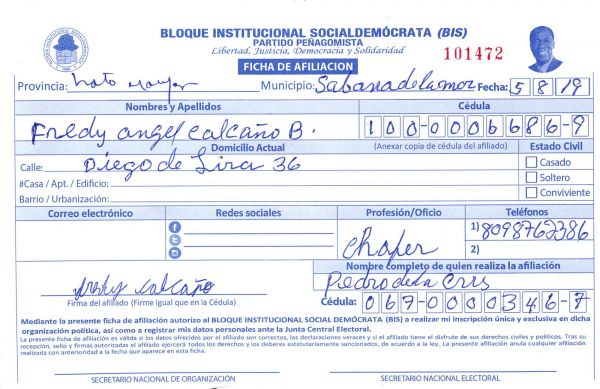 BLOQUE INSTITUCIONAL SOCIALDEMÓCRATA (BIS)
PARTIDO PEÑAGOMISTA
Libertad, Justicia, Democracia y Solidaridad
FICHA DE AFILIACION
101472
Provincia: Hato Mayor Municipio: Sabana de la mar Fecha: 5 8 19
Nombres y Apellidos Cédula
Fredy angel calcaño B. 100-0006686-9
Domicilio Actual (Anexar copia de cédula del afiliado) Estado Civil
Calle: Diego de Lira 36 Casado
#Casa / Apt. / Edificio: Soltero
Barrio / Urbanización: Conviviente
Correo electrónico Redes sociales Profesión/Oficio Teléfonos
Chofer 1) 8098762386
2)
Nombre completo de quien realiza la afiliación
fredy calcaño Piedro de la Cris
Firma del afiliado (Firme igual que en la Cédula) Cédula: 067-0000346-7
Mediante la presente ficha de afiliación autorizo al BLOQUE INSTITUCIONAL SOCIAL DEMÓCRATA (BIS) a realizar mi inscripción única y exclusiva en dicha
organización política, así como a registrar mis datos personales ante la Junta Central Electoral.
La presente ficha de afiliación es válida si los datos ofrecidos por el afiliado son correctos, las declaraciones veraces y si el afiliado tiene el disfrute de sus derechos civiles y políticos. Tras su
recepción, sello y firmas autorizadas el afiliado ejercerá todos los derechos y los deberes estatutariamente sancionados, de acuerdo a la ley. La presente afiliación anula cualquier afiliación
realizada con anterioridad a la fecha que aparece en esta ficha.
SECRETARIO NACIONAL DE ORGANIZACIÓN SECRETARIO NACIONAL ELECTORAL